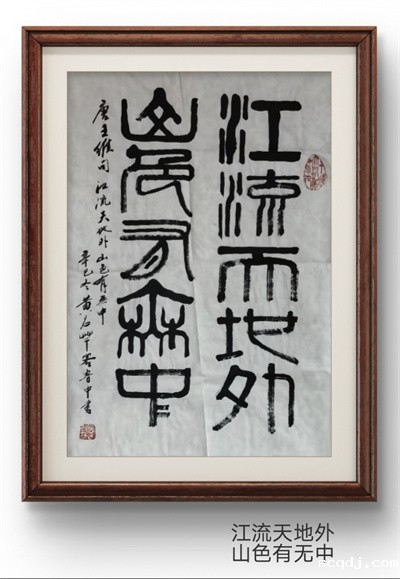 江流天地外
山色有无中
唐王维句 江流天地外 山色有无中
辛巳冬黄石
江流天地外
山色有无中
scqdj.com